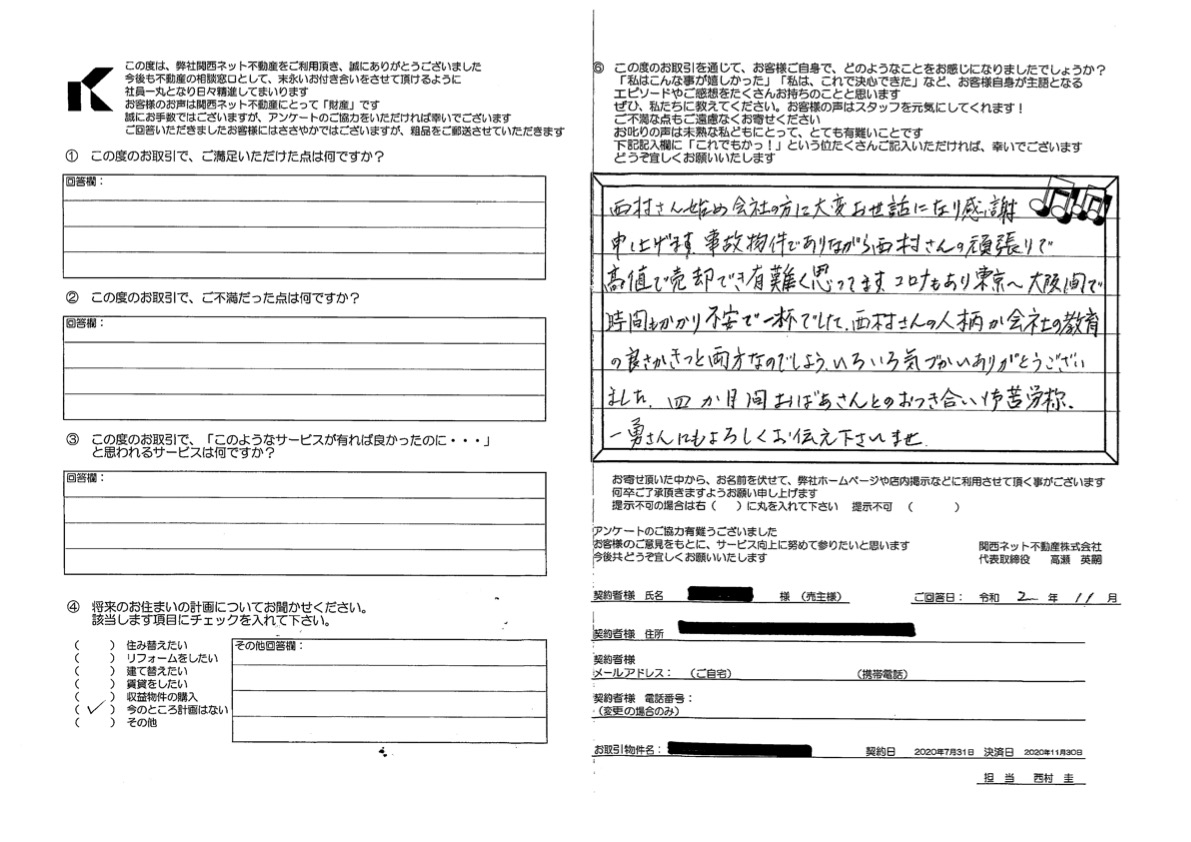 この度は、弊社関西ネット不動産をご利用頂き、誠にありがとうございました
今後も不動産の相談窓口として、末永いお付き合いをさせて頂けるように
社員一丸となり日々精進してまいります
お客様のお声は関西ネット不動産にとって「財産」です
誠にお手数ではございますが、アンケートのご協力をいただければ幸いでございます
ご回答いただきましたお客様にはささやかではございますが、粗品をご郵送させていただきます
① この度のお取引で、ご満足いただけた点は何ですか？
回答欄：
② この度のお取引で、ご不満だった点は何ですか？
回答欄：
③ この度のお取引で、「このようなサービスが有れば良かったのに・・・」
と思われるサービスは何ですか？
回答欄：
④ 将来のお住まいの計画についてお聞かせください。
該当します項目にチェックを入れて下さい。
（　）住み替えたい
（　）リフォームをしたい
（　）建て替えたい
（　）賃貸をしたい
（　）収益物件の購入
（✓）今のところ計画はない
（　）その他
その他回答欄：
⑥ この度のお取引を通じて、お客様ご自身で、どのようなことをお感じになりましたでしょうか？
「私はこんな事が嬉しかった」「私は、これで決心できた」など、お客様自身が主語となる
エピソードやご感想をたくさんお持ちのことと思います
ぜひ、私たちに教えてください。お客様の声はスタッフを元気にしてくれます！
ご不満な点もご遠慮なくお寄せください
お叱りの声は未熟な私どもにとって、とても有難いことです
下記記入欄に「これでもかっ！」という位たくさんご記入いただければ、幸いでございます
どうぞ宜しくお願いいたします
西村さん始め会社の方に大変お世話になり感謝
申し上げます。事故物件でありながら西村さんの頑張りで
高値で売却でき有難く思ってます。コロナもあり東京へ大阪間で
時間もかかり不安で一杯でした。西村さんの人柄か会社の教育
の良さかきっと両方なのでしょう。いろいろ気づかいありがとうござい
ました。四か月間おばあさんとのおつき合い御苦労様。
一勇さんにもよろしくお伝え下さいませ。
お寄せ頂いた中から、お名前を伏せて、弊社ホームページや店内掲示などに利用させて頂く事がございます
何卒ご了承頂きますようお願い申し上げます
提示不可の場合は右（　）に丸を入れて下さい　提示不可　（　　）
アンケートのご協力有難うございました
お客様のご意見をもとに、サービス向上に努めて参りたいと思います
今後共どうぞ宜しくお願いいたします
関西ネット不動産株式会社
代表取締役　高瀬　英嗣
契約者様　氏名　様　（売主様）　ご回答日：　令和　2　年　11　月
契約者様　住所
契約者様
メールアドレス：　（ご自宅）　（携帯電話）
契約者様　電話番号：
（変更の場合のみ）
お取引物件名：　契約日　2020年7月31日　決済日　2020年11月30日
担　当　西村　圭